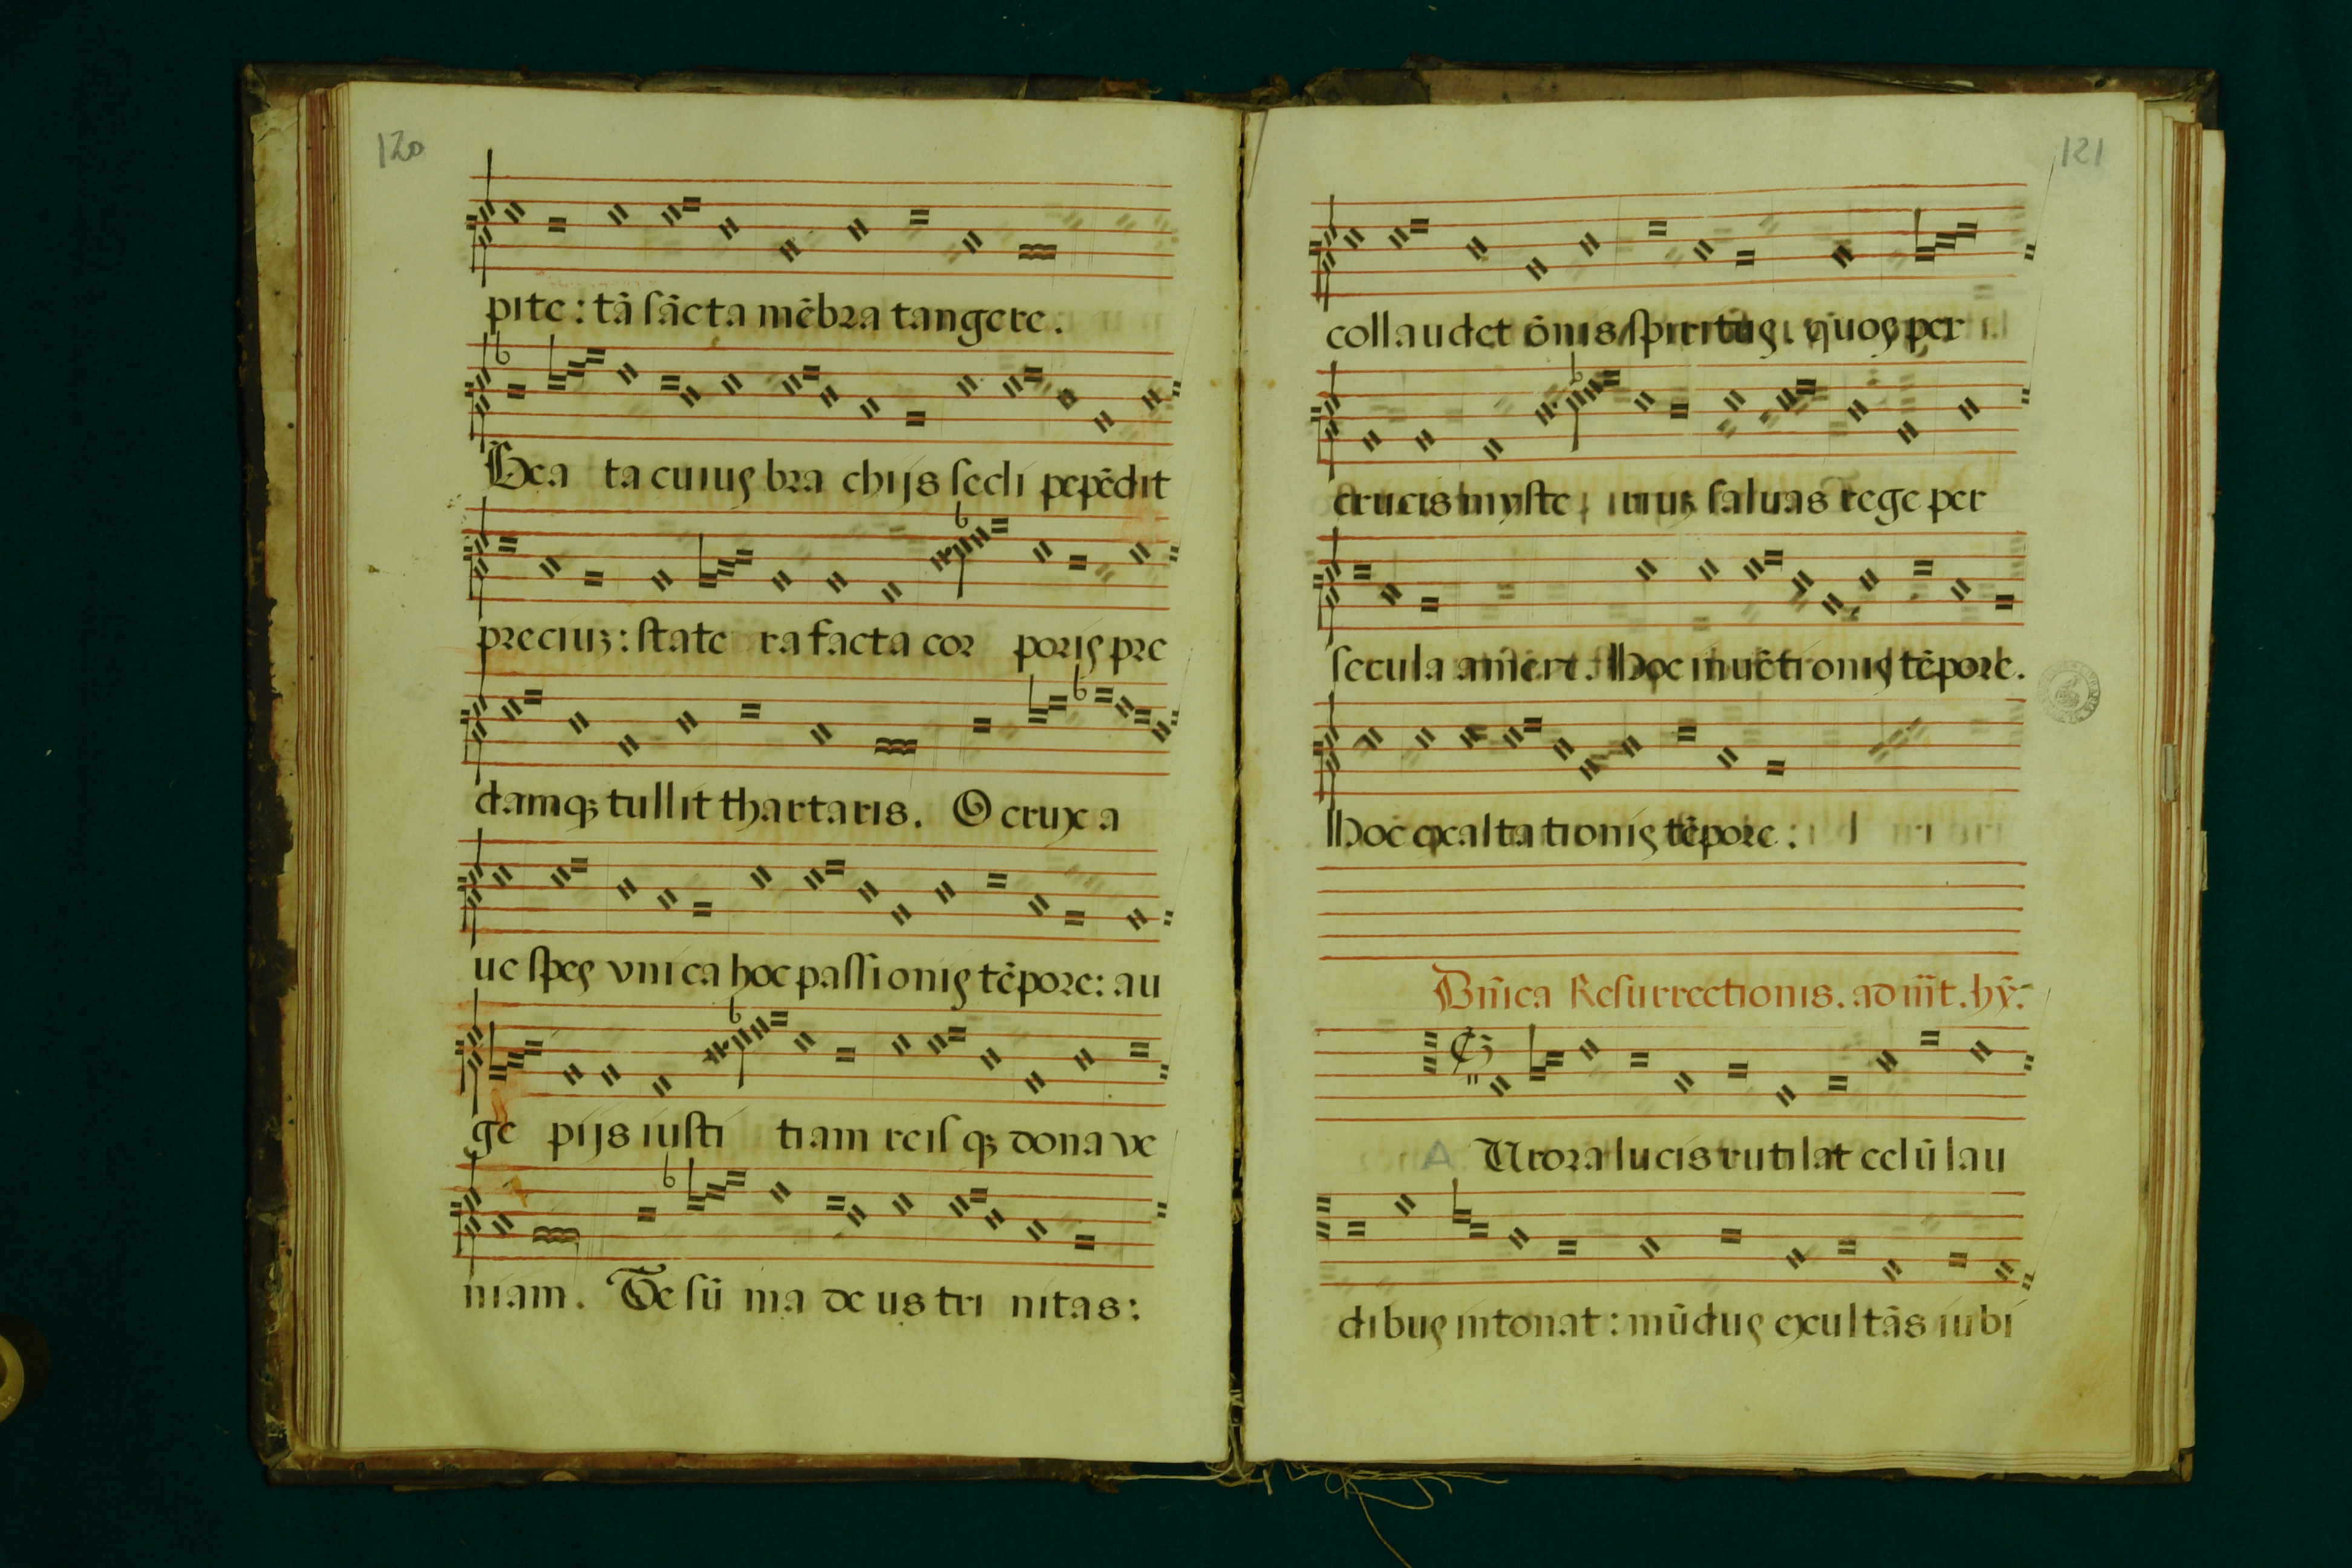 120
pite : tā sācta mēbra tangere .
Bea ta cuiuꝯ bra chijs secli pepēdit
preciuꝫ : state ra facta cor poriꝯ pre
damqꝫ tullit thartaris . O crux a
ue speꝯ vnica hoc passioniꝯ tēpore : au
ge pijs iusti tiam reis qꝫ dona ve
niam . Te sū ma de us tri nitas :
121
collaudet ōnis spirituꝯ . quoꝯ per
crucis myste riuꝫ saluas rege per
secula amen . Hoc inuētioniꝯ tēpore .
Hoc exaltationiꝯ tēpore :
Dn̄ica Resurrectionis . ad m̄t . hȳ .
A Urora lucis rutilat celū lau
dibuꝯ intonat : mūduꝯ exultās iubi